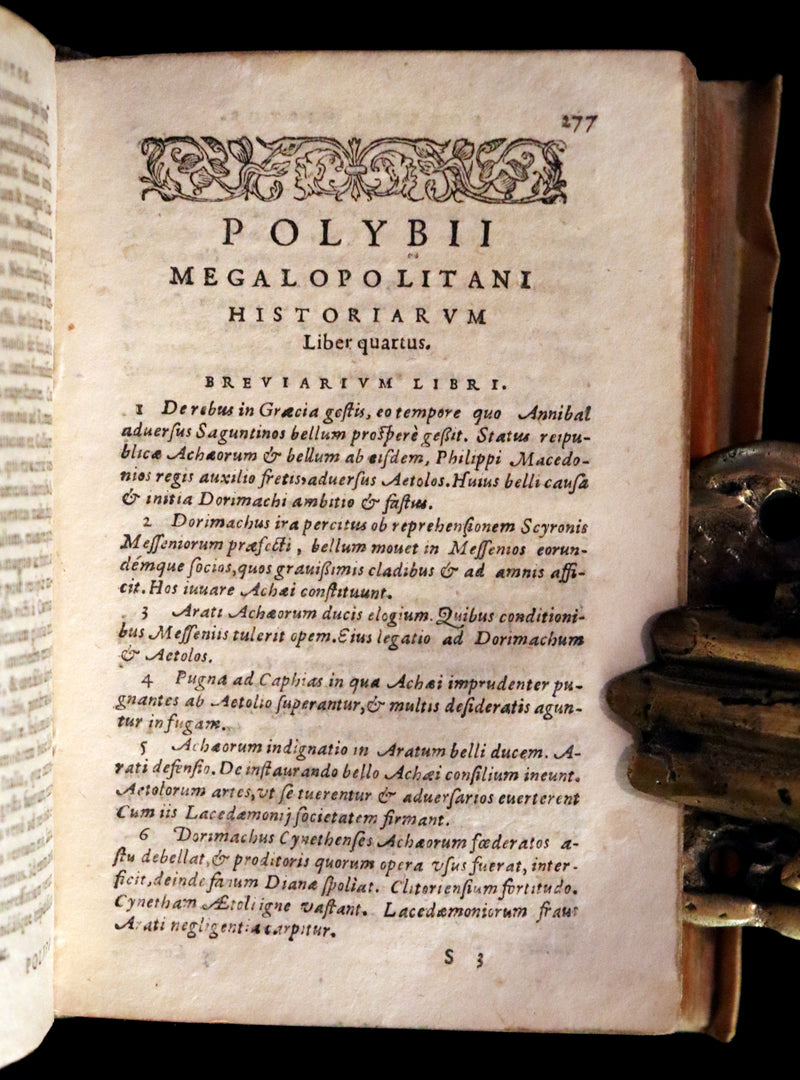 277
POLYBII
MEGALOPOLITANI
HISTORIARVM
Liber quartus.
BREVIARIVM LIBRI.
1 De rebus in Græcia geſtis, eo tempore quo Annibal
aduerſus Saguntinos bellum proſperè geſſit. Status reipu-
blicæ Achæorum & bellum ab eiſdem, Philippi Macedo-
nios regis auxilio fretis, aduerſus Aetolos. Huius belli cauſa
& initia Dorimachi ambitio & faſtus.
2 Dorimachus ira percitus ob reprehenſionem Scyronis
Meſſeniorum præfecti, bellum mouet in Meſſenios eorun-
démque ſocios, quos grauiſſimis cladibus & ad amnis affi-
cit. Hos iuuare Achæi conſtituunt.
3 Arati Achæorum ducis elogium. Quibus conditioni-
bus Meſſeniis tulerit opem. Eius legatio ad Dorimachum
& Aetolos.
4 Pugna ad Caphias in qua Achæi imprudenter pu-
gnantes ab Aetolio ſuperantur, & multis deſideratis agun-
tur in fugam.
5 Achæorum indignatio in Aratum belli ducem. A-
rati defenſio. De inſtaurando bello Achæi conſilium ineunt.
Aetolorum artes, vt ſe tuerentur & aduerſarios euerterent
Cum iis Lacedæmonij ſocietatem firmant.
6 Dorimachus Cynethenſes Achæorum fœderatos a-
ſtu debellat, & proditoris quorum opera vſus fuerat, inter-
ficit, deinde fanum Dianæ ſpoliat. Clitorienſium fortitudo.
Cynetham Ætoli igne vaſtant. Lacedæmoniorum fraus
Arati negligentia carpitur.
S 3